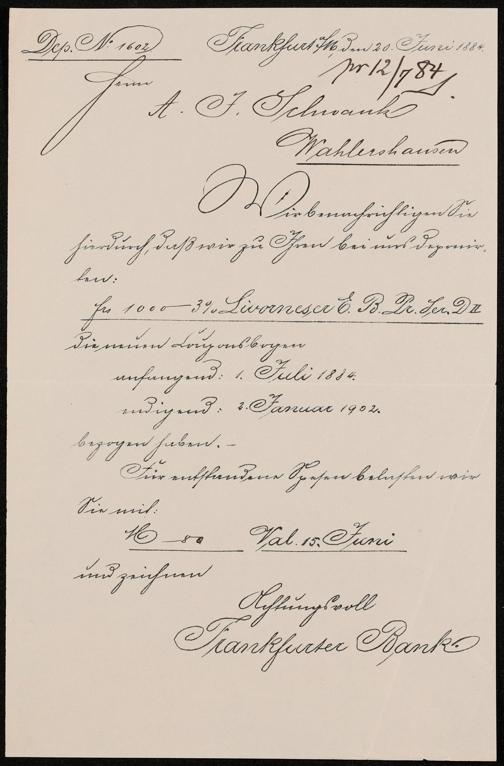 Dep. No 1602
Frankfurt a/M, den 20. Juni 1884.
pr 12/7 84
Herrn
A. F. Schwank
Wahlershausen
Wir benachrichtigen Sie
hierdurch, daß wir zu Ihren bei uns deponir-
ten:
frs 1000 — 3% Livorneser E. B. Pr. Ser. D II
die neuen Couponsbogen
anfangend: 1. Juli 1884.
endigend: 2. Januar 1902.
bezogen haben. —
Für entstandene Spesen belasten wir
Sie mit:
M — 80 Val. 15. Juni
und zeichnen
Achtungsvoll
Frankfurter Bank.